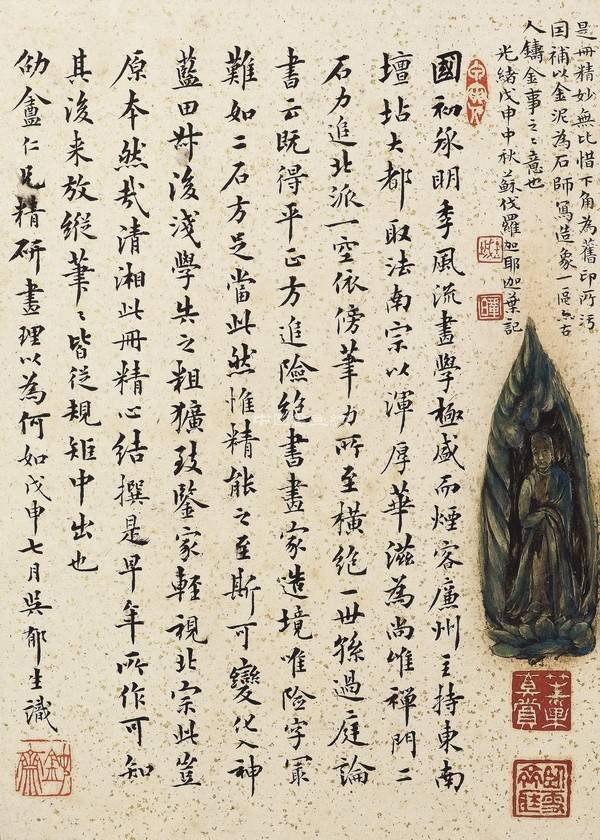 是冊精妙無比惜下角為舊印所污
囙補以金泥為石師寫造象一區亦古
人鑄金事之〻意也
光緒戊申中秋蘇伐羅迦耶伽葉記
國初承明季風流畫學極盛而煙客廉州主持東南
壇坫大都取法南宗以渾厚華滋為尚惟禪門二
石力追北派一空依傍筆力所至橫絕一世孫過庭論
書云既得平正方追險絕書畫家造境唯險字冣
難如二石方足當此然惟精能之至斯可變化入神
藍田叔後淺學失之粗獷致鑒家輕視北宗此豈
原本然哉清湘此冊精心結撰是早年所作可知
其後来放縱筆〻皆從規矩中出也
劭盦仁兄精研畫理以為何如戊申七月吳郁生識
鈍齋
真賞